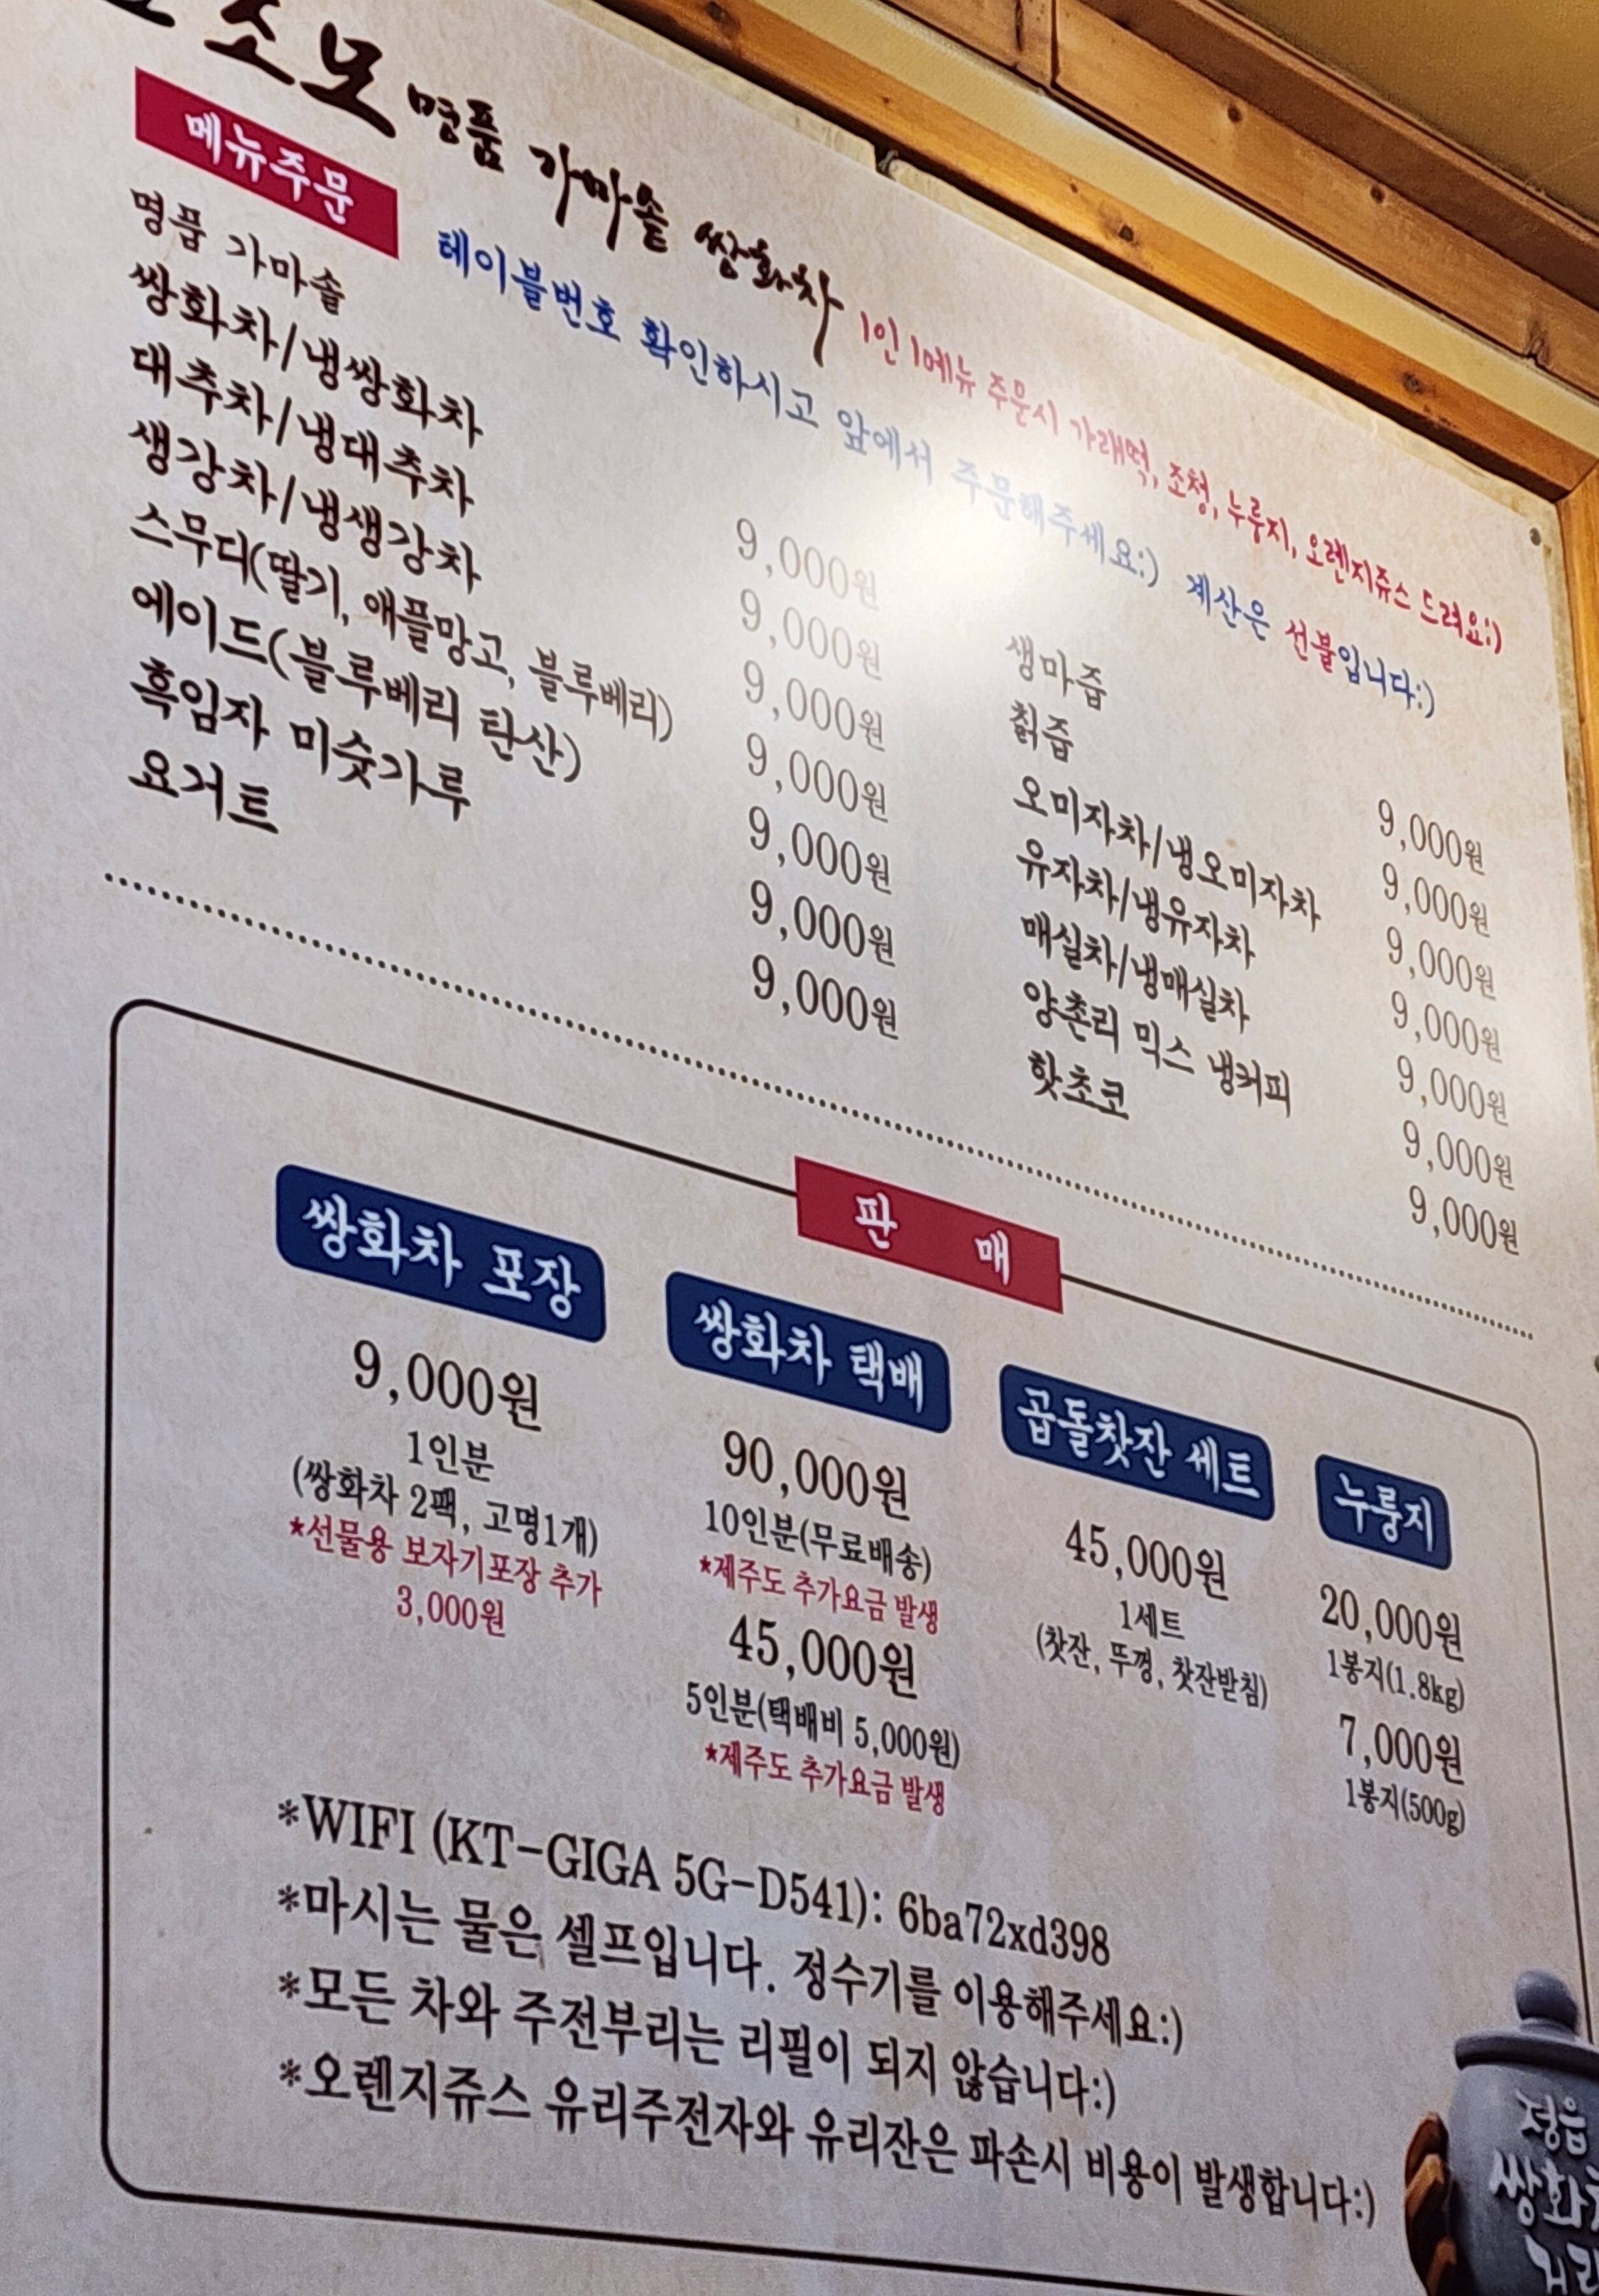 소모 명품 가마솥 쌍화차 1인 1메뉴 주문시 가래떡, 조청, 누룽지, 오렌지쥬스 드려요:)
메뉴주문 테이블번호 확인하시고 앞에서 주문해주세요:) 계산은 선불입니다:)
명품 가마솥
쌍화차/냉쌍화차 9,000원
대추차/냉대추차 9,000원
생강차/냉생강차 9,000원
스무디(딸기, 애플망고, 블루베리) 9,000원
에이드(블루베리 탄산) 9,000원
흑임자 미숫가루 9,000원
요거트 9,000원
생마즙 9,000원
칡즙 9,000원
오미자차/냉오미자차 9,000원
유자차/냉유자차 9,000원
매실차/냉매실차 9,000원
양촌리 믹스 냉커피 9,000원
핫초코 9,000원
판 매
쌍화차 포장
9,000원
1인분
(쌍화차 2팩, 고명1개)
*선물용 보자기포장 추가
3,000원
쌍화차 택배
90,000원
10인분(무료배송)
*제주도 추가요금 발생
45,000원
5인분(택배비 5,000원)
*제주도 추가요금 발생
곱돌찻잔 세트
45,000원
1세트
(찻잔, 뚜껑, 찻잔받침)
누룽지
20,000원
1봉지(1.8kg)
7,000원
1봉지(500g)
*WIFI (KT-GIGA 5G-D541): 6ba72xd398
*마시는 물은 셀프입니다. 정수기를 이용해주세요:)
*모든 차와 주전부리는 리필이 되지 않습니다:)
*오렌지쥬스 유리주전자와 유리잔은 파손시 비용이 발생합니다:)
정읍
쌍화